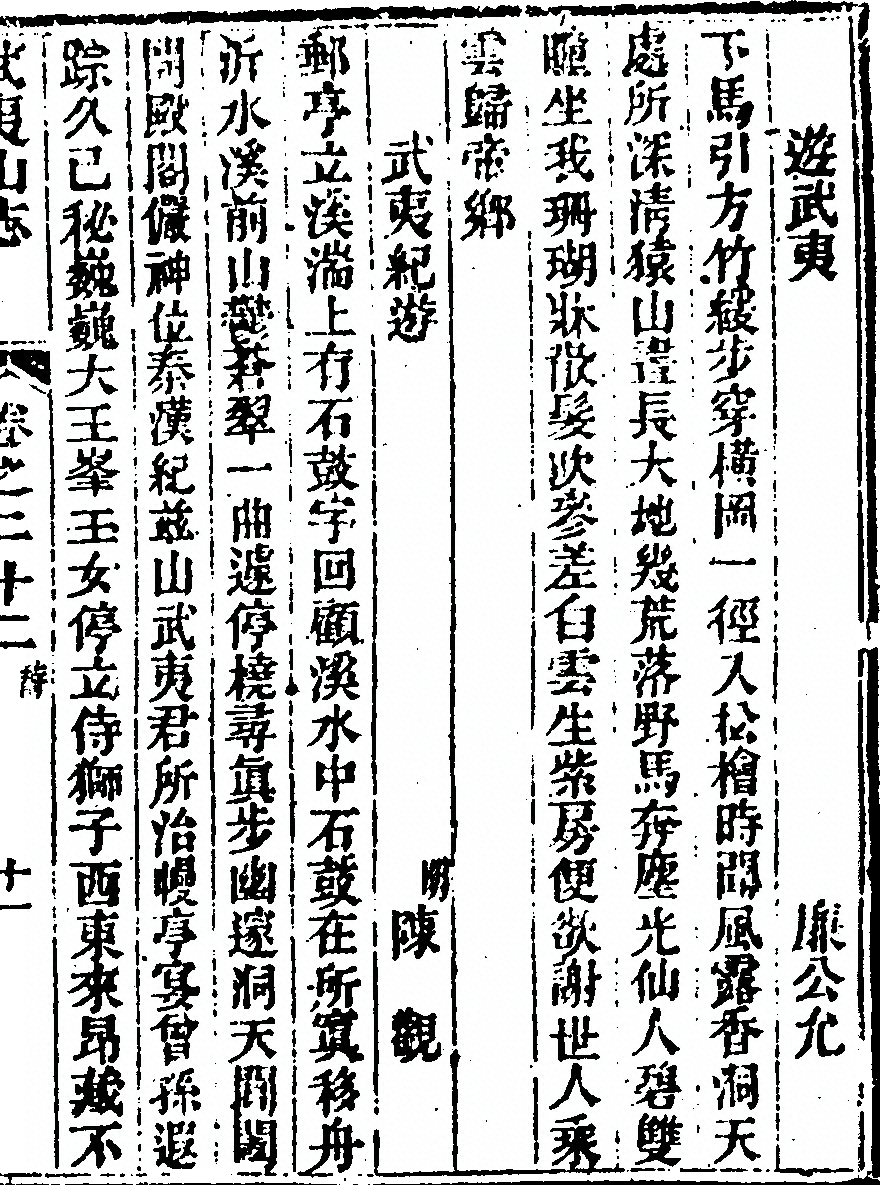 遊武夷 廉公允
下馬引方竹緩步穿橫岡一徑入松檜時聞風露香洞天
處所深清猿山晝長大地幾荒落野馬奔塵光仙人碧雙
瞳坐我珊瑚牀散髮吹參差白雲生紫房便欲謝世人乘
雲歸帝鄉
武夷紀遊 明 陳觀
郵亭立溪湍上有石鼓字回顧溪水中石鼓在所寘移舟
泝水溪前山鬱蒼翠一曲遽停橈尋眞步幽邃洞天開閟
殿閣儼神位秦漢紀茲山武夷君所治幔亭宴曾孫遐
踪久已秘巍巍大王峯玉女停立侍獅子西東來昂藏不
武夷山志 卷之二十二 十一